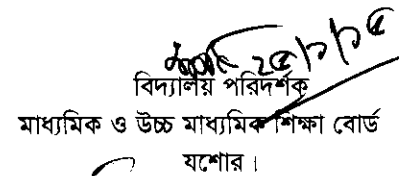 ২৫/১/১৫
বিদ্যালয় পরিদর্শক
মাধ্যমিক ও উচ্চ মাধ্যমিক শিক্ষা বোর্ড
যশোর।